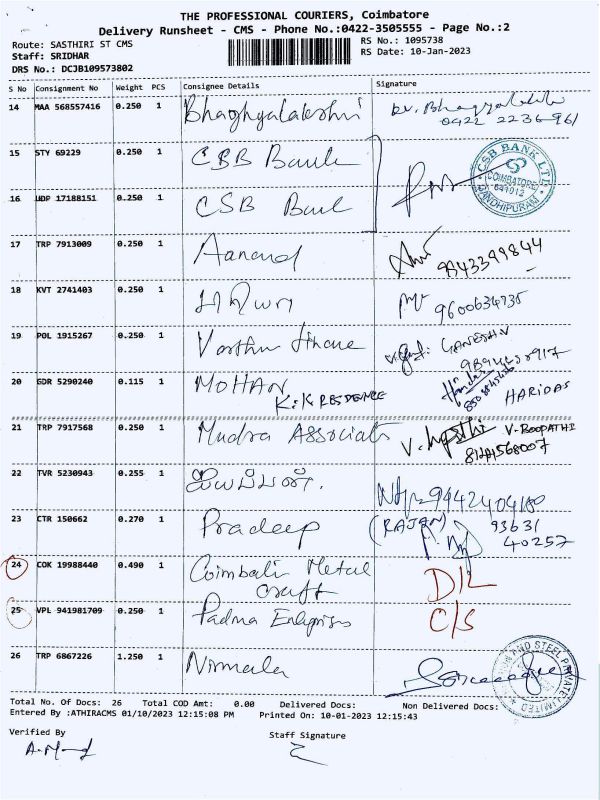 THE PROFESSIONAL COURIERS, Coimbatore
Delivery Runsheet - CMS - Phone No.:0422-3505555 - Page No.:2
Route: SASTHIRI ST CMS
RS No.: 1095738
Staff: SRIDHAR
RS Date: 10-Jan-2023
DRS No.: DCJB109573802
S No Consignment No Weight PCS Consignee Details Signature
14 MAA 568557416 0.250 1
0422 2236961
15 STY 69229 0.250 1 CSB Bank
CSB BANK LTD
COIMBATORE
641012
GANDHIPURAM
16 UDP 17188151 0.250 1 CSB Bank
17 TRP 7913009 0.250 1 Aanand
9843399844
18 KVT 2741403 0.250 1
9600634735
19 POL 1915267 0.250 1
GANESH.V
20 GDR 5290240 0.115 1 MOHAN
K.K RESIDENCE
HARIDAS
21 TRP 7917568 0.250 1 Mudra Associats
V. BOOPATHI
8124568007
22 TVR 5230943 0.255 1 ஐயப்பன்.
23 CTR 150662 0.270 1 Pradeep
(RAJAN) 93631
40257
24 COK 19988440 0.490 1 Coimbatr Metal
Craft
D/L
25 VPL 941981709 0.250 1 Padma Enterprises
C/S
26 TRP 6867226 1.250 1 Nirmala
AND STEEL PRIVATE LIMITED
Total No. Of Docs: 26 Total COD Amt: 0.00 Delivered Docs: Non Delivered Docs:
Entered By :ATHIRACMS 01/10/2023 12:15:08 PM Printed On: 10-01-2023 12:15:43
Verified By
Staff Signature